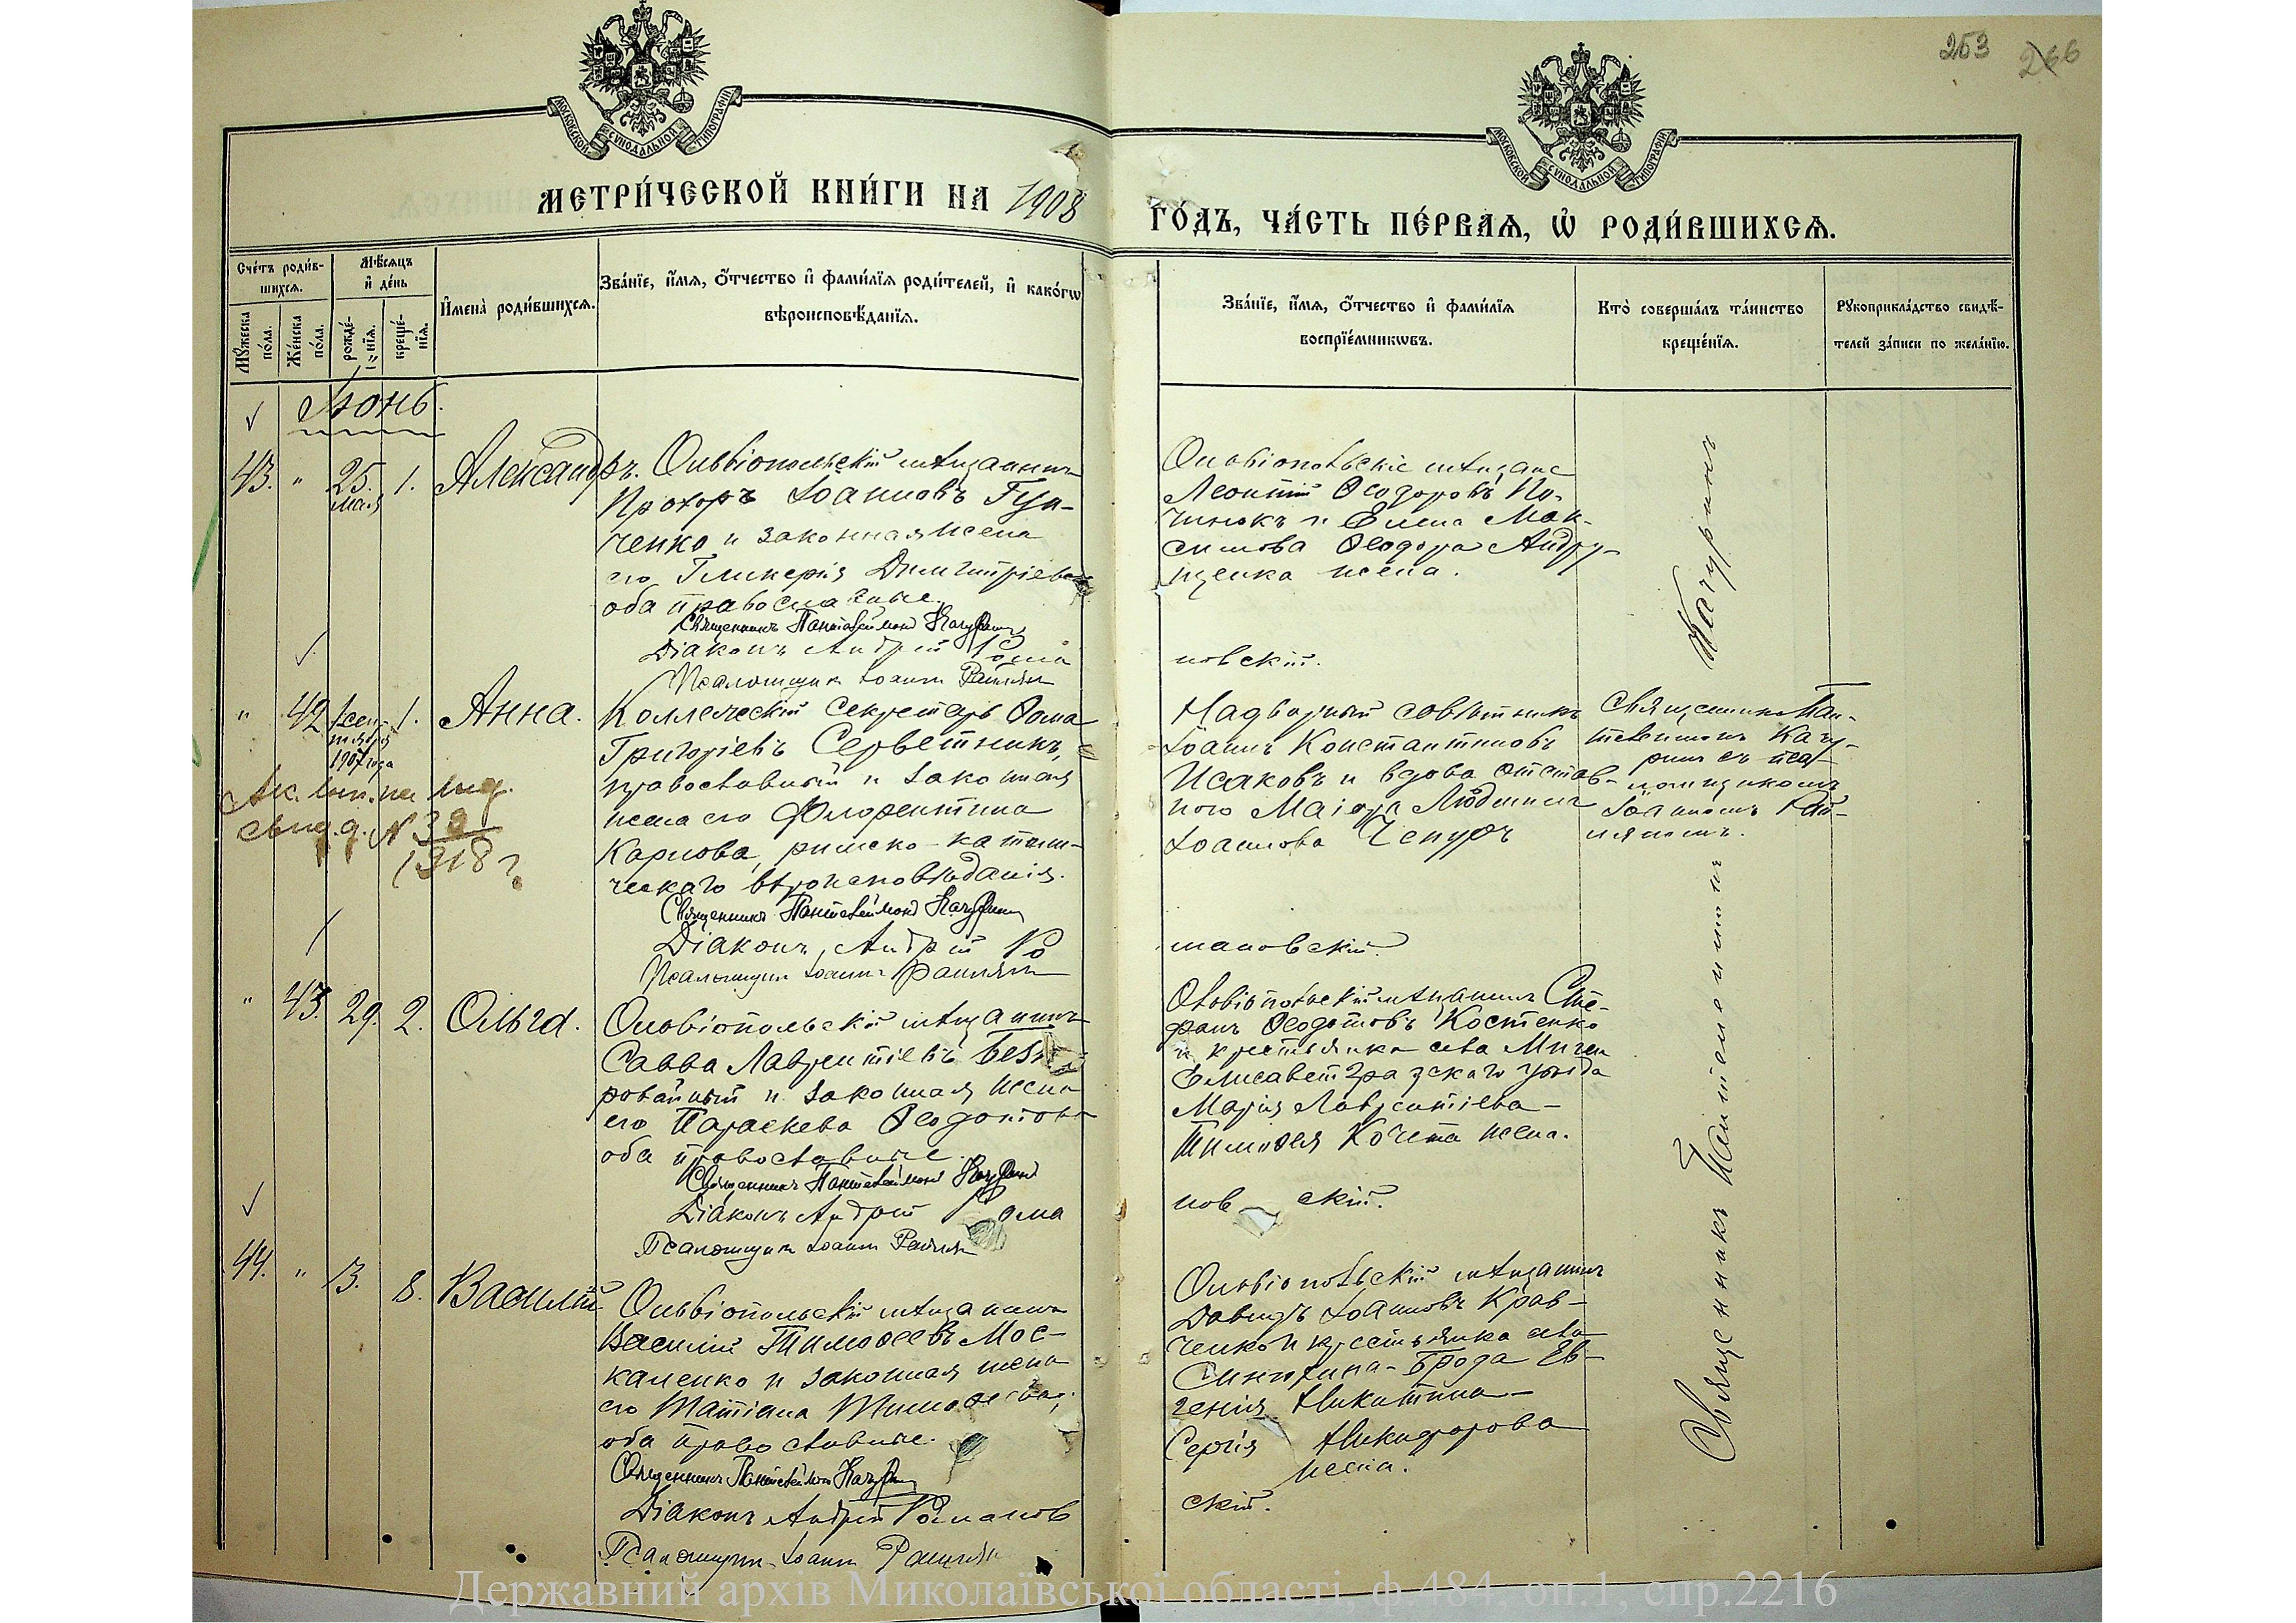 253 266
МОСКОВСКОЙ СѴНОДАЛЬНОЙ ТИПОГРАФІИ
МОСКОВСКОЙ СѴНОДАЛЬНОЙ ТИПОГРАФІИ
МЕТРИ́ЧЕСКОЙ КНИ́ГИ НА 1908
ГО́ДЪ, ЧА́СТЬ ПЕ́РВАѦ, Ѡ҆ РОДИ́ВШИХСѦ.
Сче́тъ роди́в-
шихсѧ.
Мѣ́сѧцъ
и҆ де́нь
Мꙋ́жеска
по́ла.
Же́нска
по́ла.
рожде́-
нїѧ.
креще́-
нїѧ.
И҆мена̀ роди́вшихсѧ.
Зва́нїе, и҆́мѧ, ѻ҆́тчество и҆ фами́лїѧ роди́телей, и҆ како́гѡ
вѣроисповѣ́данїѧ.
Зва́нїе, и҆́мѧ, ѻ҆́тчество и҆ фами́лїѧ
воспрїе́мникѡвъ.
Кто̀ соверша́лъ та́инство
креще́нїѧ.
Рꙋкоприкла́дство свидѣ́-
телей за́писи по жела́нїю.
Іюнь.
43. " 25. мая 1. Александръ.
Ольвіопольскій мѣщанинъ
Прохоръ Іоанновъ
ченко и законная жена
его Гликерія Димитріева
оба православные.
Священникъ Пантелеимонъ Качуринъ
Діаконъ Андрей Рома
Псаломщикъ Іоаннъ
Ольвіопольскіе мѣщане
Леонтій Ѳеодоровъ По-
чинокъ и Елена Мак-
симова Ѳеодора Андру-
щенка жена.
новскій.
" 42 1 сен-
тября
1907 года
1. Анна.
Коллежскій Секретарь Ѳома
Григоріевъ Серветникъ,
православный и законная
жена его Флорентина
Карлова, римско-католи-
ческаго вѣроисповѣданія.
Священникъ Пантелеимонъ Качуринъ
Діаконъ Андрей Ро
Псаломщикъ Іоаннъ
Надворный совѣтникъ
Іоаннъ Константиновъ
Исаковъ и вдова отстав-
ного Маіора Людмила
Іоаннова Чепуръ
мановскій.
Священникъ Пан-
телеимонъ Качу-
ринъ съ пса-
ломщикомъ
Іоанномъ
1918 г.
" 43. 29. 2. Ольга.
Ольвіопольскій мѣщанинъ
Савва Лаврентіевъ
и законная жена
его Параскева Ѳеодотова
оба православные.
Священникъ Пантелеимонъ Качуринъ
Діаконъ Андрей Рома
Псаломщикъ Іоаннъ
Ольвіопольскій мѣщанинъ Сте-
фанъ Ѳеодотовъ Костенко
и крестьянка села Мигеи
Елисаветградскаго уѣзда
Марія Лаврентіева
Тимоѳея Кочета жена.
новскій.
44. " 3. 8. Василій
Ольвіопольскій мѣщанинъ
Василій Тимоѳеевъ Мос-
каленко и законная жена
его Татіана Тимоѳеева,
оба православные.
Священникъ Пантелеимонъ Качуринъ
Діаконъ Андрей Романов
Псаломщикъ Іоаннъ
Ольвіопольскій мѣщанинъ
Давидъ Іоанновъ Крав-
ченко и крестьянка села
Синюхина-Брода Ев-
генія Никитина
Сергія Никифорова
жена.
скій.
Священникъ Пантелеимонъ Качуринъ
Державний архів Миколаївської області, ф.484, оп.1, спр.2216